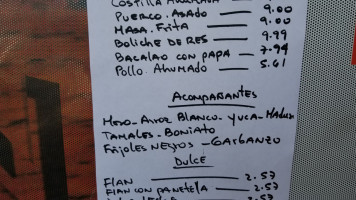 Costilla Ahumada — 9.00
Puerco Asado — 9.00
Masa Frita — 9.00
Boliche de Res — 9.99
Bacalao con papa — 7.94
Pollo Ahumado — 5.61
Acompañantes
Moro - Arroz Blanco - Yuca - Maduro
Tamales - Boniato
Frijoles Negros - Garbanzo
Dulce
Flan — 2.57
Flan con panetela — 2.57